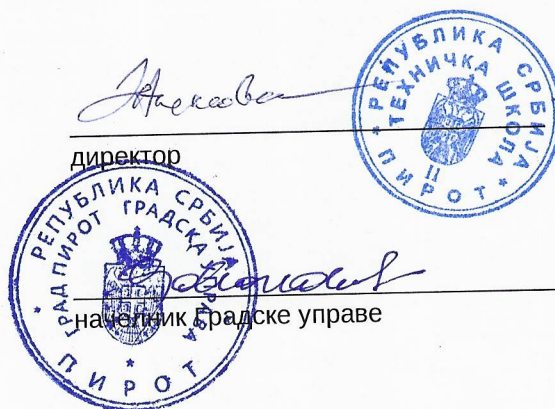 РЕПУБЛИКА СРБИЈА
ТЕХНИЧКА ШКОЛА
II
ПИРОТ
директор
РЕПУБЛИКА СРБИЈА
ГРАД ПИРОТ ГРАДСКА УПРАВА
ПИРОТ
начелник Градске управе